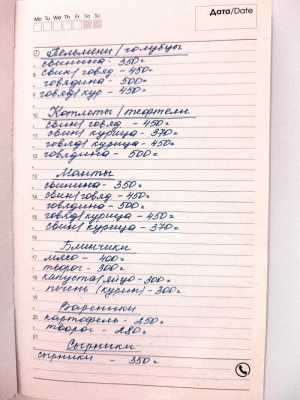 Mo Tu We Th Fr Sa Su
Дата/Date
Пельмени / голубцы
свинина - 350=
свин/говяд - 450=
говядина - 500=
говяд/кур - 450=
Котлеты / тефтели
свин/говяд - 450=
свин/курица - 370=
говяд/курица - 450=
говядина - 500=
Манты
свинина - 350=
свин/говяд - 450=
говядина - 500=
говяд/курица - 450=
свин/курица - 370=
Блинчики
мясо - 400=
творог - 300=
капуста/яйцо - 300=
печень (курин) - 300=
Вареники
картофель - 250=
творог - 280=
Сырники
сырники - 350=